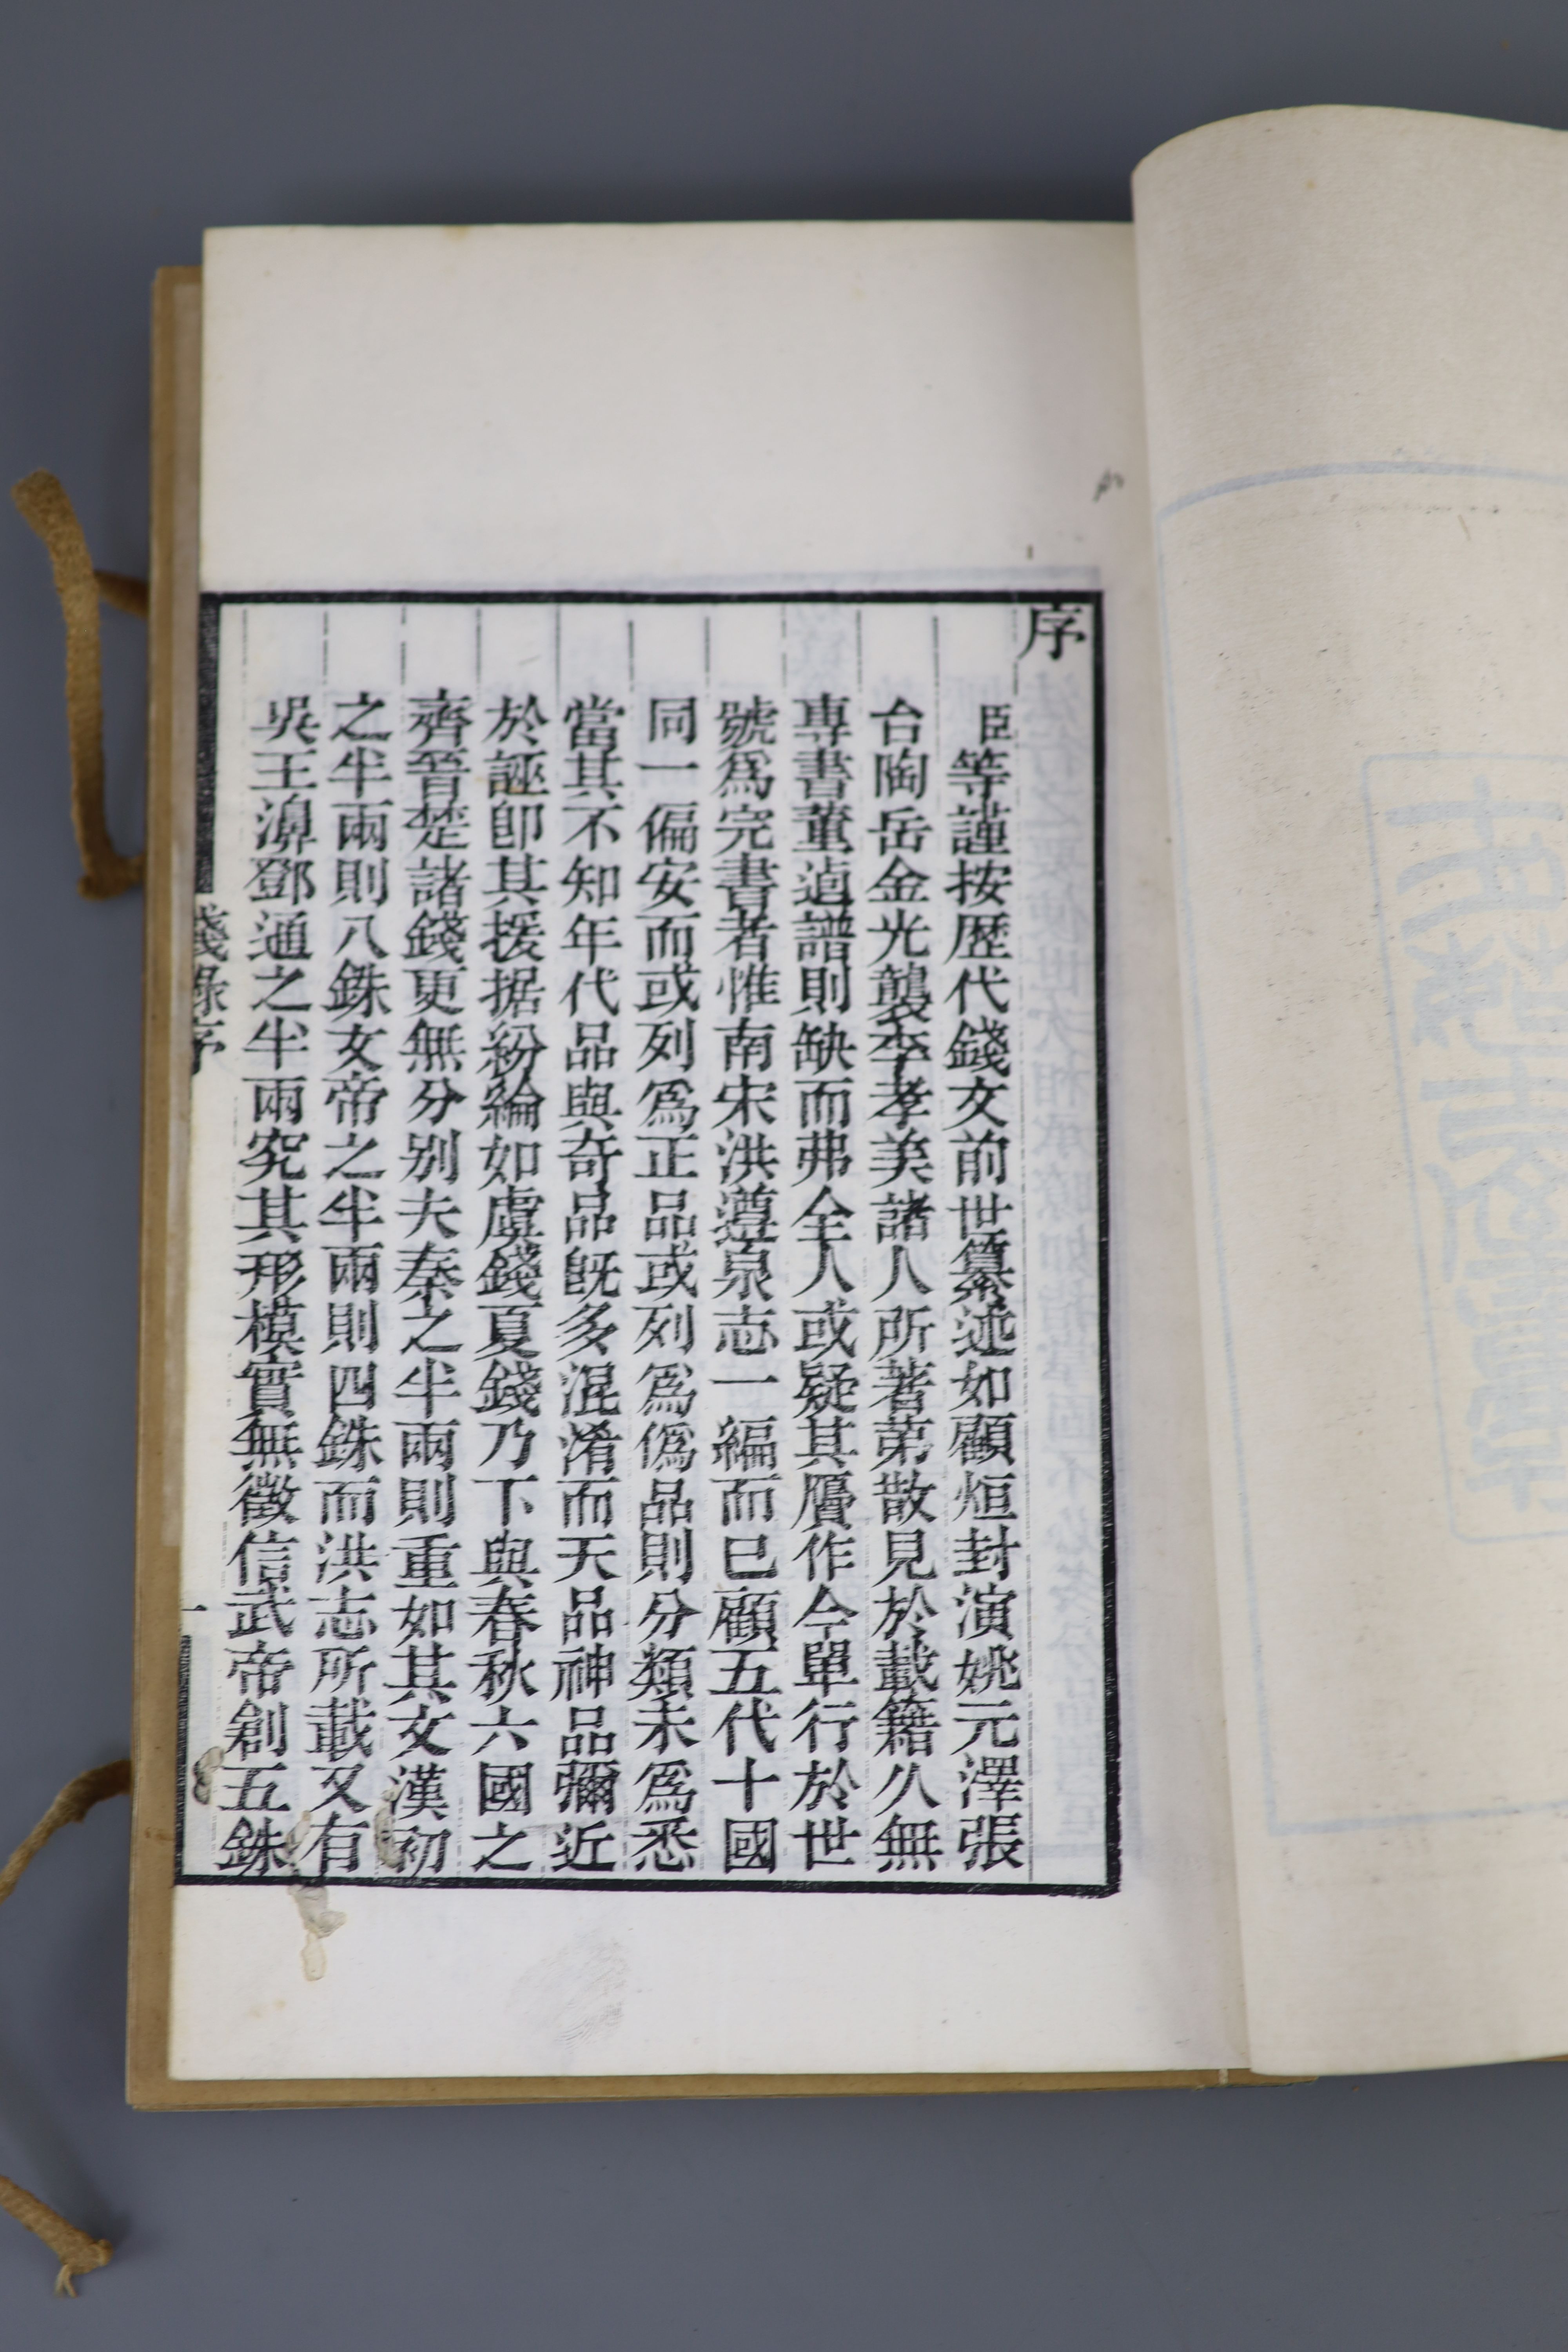 序
臣等謹按歷代錢文前世纂述如顧烜封演姚元澤張
台陶岳金光襲李孝美諸人所著第散見於載籍久無
專書董逌譜則缺而弗全人或疑其贋作今單行於世
號爲完書者惟南宋洪遵泉志一編而已顧五代十國
同一偏安而或列爲正品或列爲僞品則分類未爲悉
當其不知年代品與奇品旣多混淆而天品神品彌近
於誣卽其援据紛綸如虞錢夏錢乃下與春秋六國之
齊晉楚諸錢更無分别夫秦之半兩則重如其文漢初
之半兩則八銖文帝之半兩則四銖而洪志所載又有
吳王濞鄧通之半兩究其形模實無徵信武帝創五銖
錢錄序
一